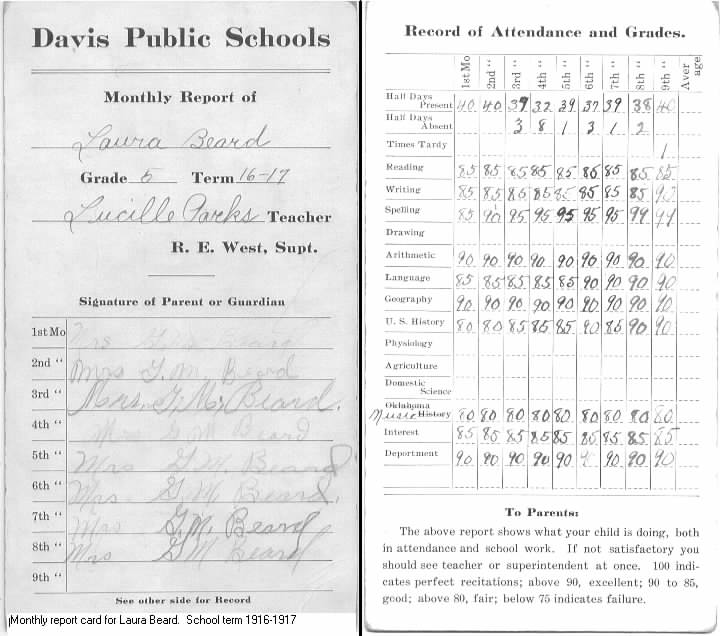 Davis Public Schools
Monthly Report of
Laura Beard
Grade 5 Term 16-17
Lucille Parks Teacher
R. E. West, Supt.
Signature of Parent or Guardian
1st Mo Mrs G.M. Beard
2nd " Mrs G.M. Beard
3rd " Mrs. G. M. Beard.
4th " M G M Beard
5th " Mrs G.M Beard
6th " Mrs. G.M Beard.
7th " Mrs G.M. Beard
8th " Mrs G M Beard
9th "
See other side for Record
Monthly report card for Laura Beard. School term 1916-1917
Record of Attendance and Grades.
1st Mo 2nd " 3rd " 4th " 5th " 6th " 7th " 8th " 9th " Average
Half Days Present 40 40 37 32 39 37 39 38 40
Half Days Absent 3 8 1 3 1 2
Times Tardy 1
Reading 85 85 85 85 85 85 85 85 85
Writing 85 85 85 85 85 85 85 85 90
Spelling 85 90 95 95 95 95 95 99 99
Drawing
Arithmetic 90 90 90 90 90 90 90 90 90
Language 85 85 85 85 85 90 90 90 90
Geography 90 90 90 90 90 90 90 90 90
U. S. History 80 80 85 85 85 90 85 90 90
Physiology
Agriculture
Domestic Science
Oklahoma History
Music 80 80 80 80 80 80 80 80 80
Interest 85 85 85 85 85 85 85 85 85
Department 90 90 90 90 90 90 90 90
To Parents:
The above report shows what your child is doing, both
in attendance and school work. If not satisfactory you
should see teacher or superintendent at once. 100 indi-
cates perfect recitations; above 90, excellent; 90 to 85,
good; above 80, fair; below 75 indicates failure.